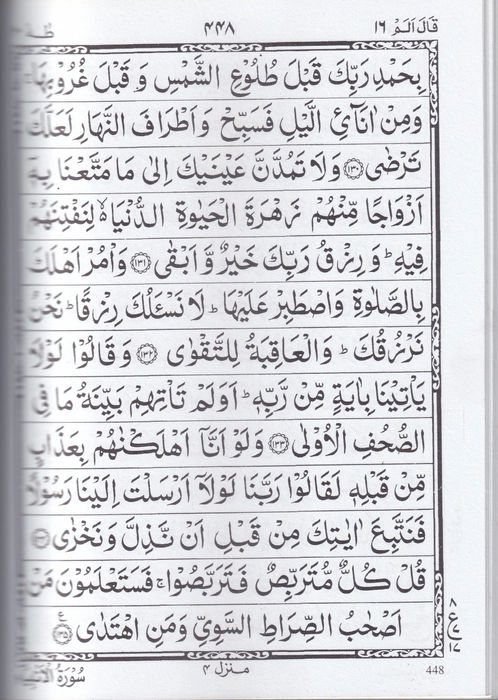 قَالَ اَلَمْ ١٦ ٤٤٨ طٰهٰ
بِحَمْدِ رَبِّكَ قَبْلَ طُلُوْعِ الشَّمْسِ وَ قَبْلَ غُرُوْبِهَا ۚ
وَمِنْ اٰنَآئِ الَّيْلِ فَسَبِّحْ وَاَطْرَافَ النَّهَارِ لَعَلَّكَ
تَرْضٰى ﴿١٣٠﴾ وَلَا تَمُدَّنَّ عَيْنَيْكَ اِلٰى مَا مَتَّعْنَا بِهٖٓ
اَزْوَاجًا مِّنْهُمْ زَهْرَةَ الْحَيٰوةِ الدُّنْيَا ۙ۬ لِنَفْتِنَهُمْ
فِيْهِ ؕ وَ رِزْقُ رَبِّكَ خَيْرٌ وَّ اَبْقٰى ﴿١٣١﴾ وَاْمُرْ اَهْلَكَ
بِالصَّلٰوةِ وَاصْطَبِرْ عَلَيْهَا ؕ لَا نَسْـَٔلُكَ رِزْقًا ؕ نَحْنُ
نَرْزُقُكَ ؕ وَالْعَاقِبَةُ لِلتَّقْوٰى ﴿١٣٢﴾ وَقَالُوْا لَوْلَا
يَاْتِيْنَا بِاٰيَةٍ مِّنْ رَّبِّهٖ ؕ اَوَلَمْ تَاْتِهِمْ بَيِّنَةُ مَا فِى
الصُّحُفِ الْاُوْلٰى ﴿١٣٣﴾ وَلَوْ اَنَّآ اَهْلَكْنٰهُمْ بِعَذَابٍ
مِّنْ قَبْلِهٖ لَقَالُوْا رَبَّنَا لَوْلَآ اَرْسَلْتَ اِلَيْنَا رَسُوْلًا
فَنَتَّبِعَ اٰيٰتِكَ مِنْ قَبْلِ اَنْ نَّذِلَّ وَنَخْزٰى ﴿١٣٤﴾
قُلْ كُلٌّ مُّتَرَبِّصٌ فَتَرَبَّصُوْا ۚ فَسَتَعْلَمُوْنَ مَنْ
اَصْحٰبُ الصِّرَاطِ السَّوِىِّ وَمَنِ اهْتَدٰى ﴿١٣٥﴾ ع
٨
ع ٧
١٧
448 منزل ٤ سُوْرَةُ الْاَنْبِيَآءِ